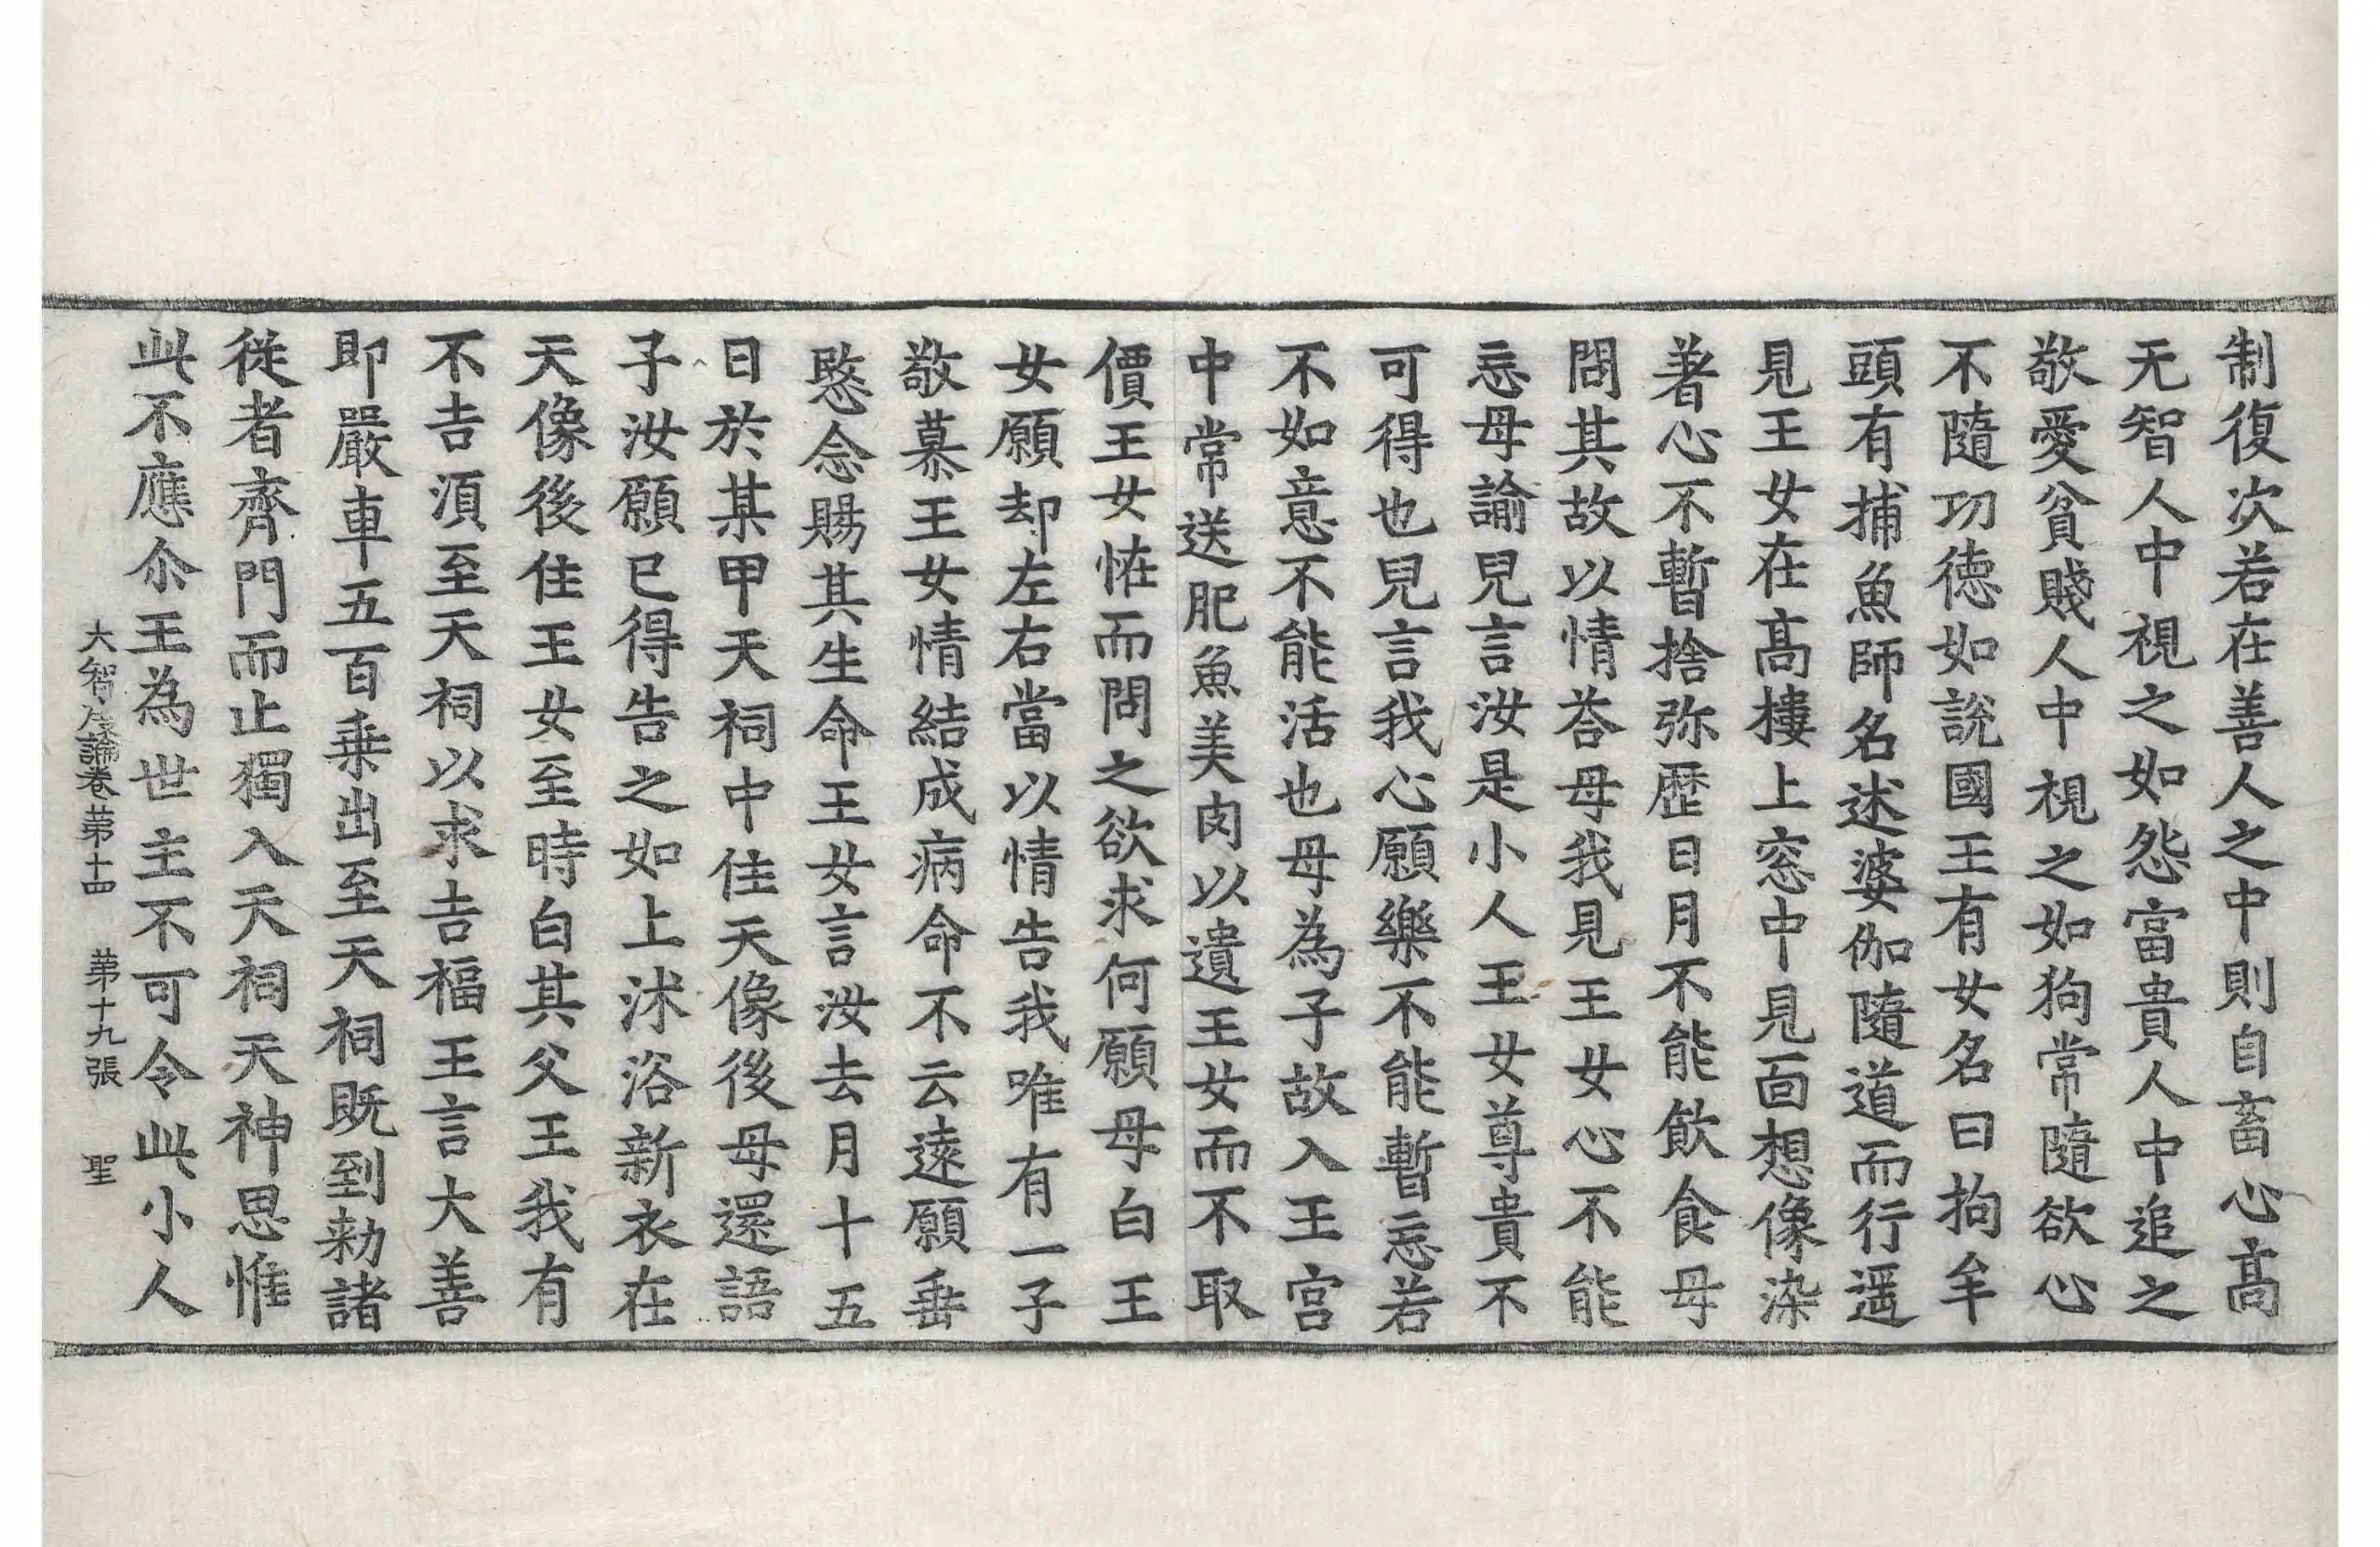 制復次若在善人之中則自畜心高
无智人中視之如怨富貴人中追之
敬愛貧賤人中視之如狗常隨欲心
不隨功德如說國王有女名曰拘牟
頭有捕魚師名述婆伽隨道而行遥
見王女在高樓上窓中見面想像染
著心不暫捨弥歷日月不能飲食母
問其故以情荅母我見王女心不能
忘母諭兒言汝是小人王女尊貴不
可得也兒言我心願樂不能暫忘若
不如意不能活也母為子故入王宮
中常送肥魚美肉以遺王女而不取
價王女恠而問之欲求何願母白王
女願却左右當以情告我唯有一子
敬慕王女情結成病命不云遠願垂
愍念賜其生命王女言汝去月十五
日於某甲天祠中住天像後母還語
子汝願已得告之如上沐浴新衣在
天像後住王女至時白其父王我有
不吉須至天祠以求吉福王言大善
即嚴車五百乗出至天祠既到勑諸
從者齊門而止獨入天祠天神思惟
此不應尒王為世主不可令此小人
大智度論卷苐十四 苐十九張 聖